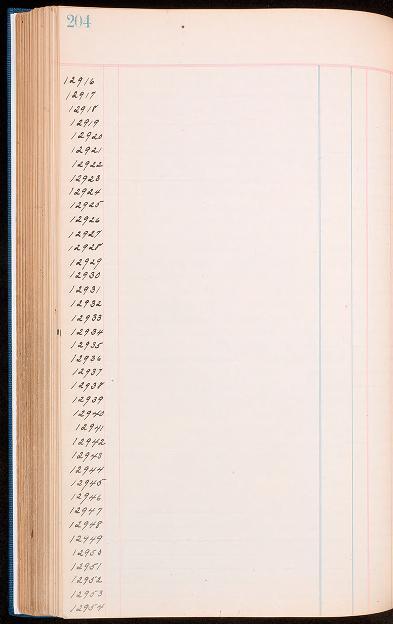 204
12916
12917
12918
12919
12920
12921
12922
12923
12924
12925
12926
12927
12928
12929
12930
12931
12932
12933
12934
12935
12936
12937
12938
12939
12940
12941
12942
12943
12944
12945
12946
12947
12948
12449
12950
12951
12952
12953
12954